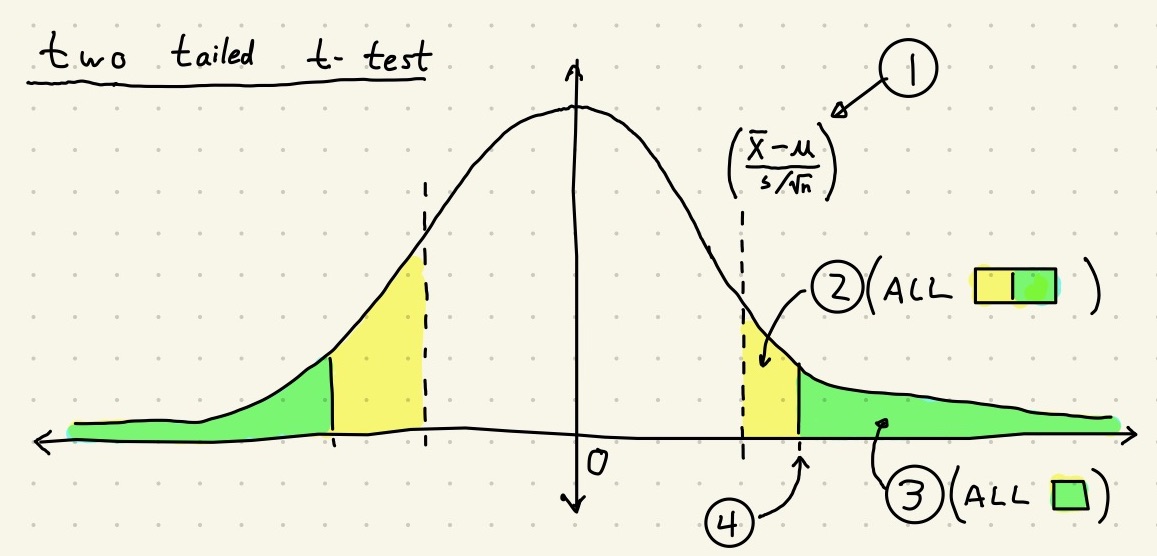 two tailed t- test
1
(x̄-μ / s/√n)
2 (ALL )
0
3 (ALL )
4